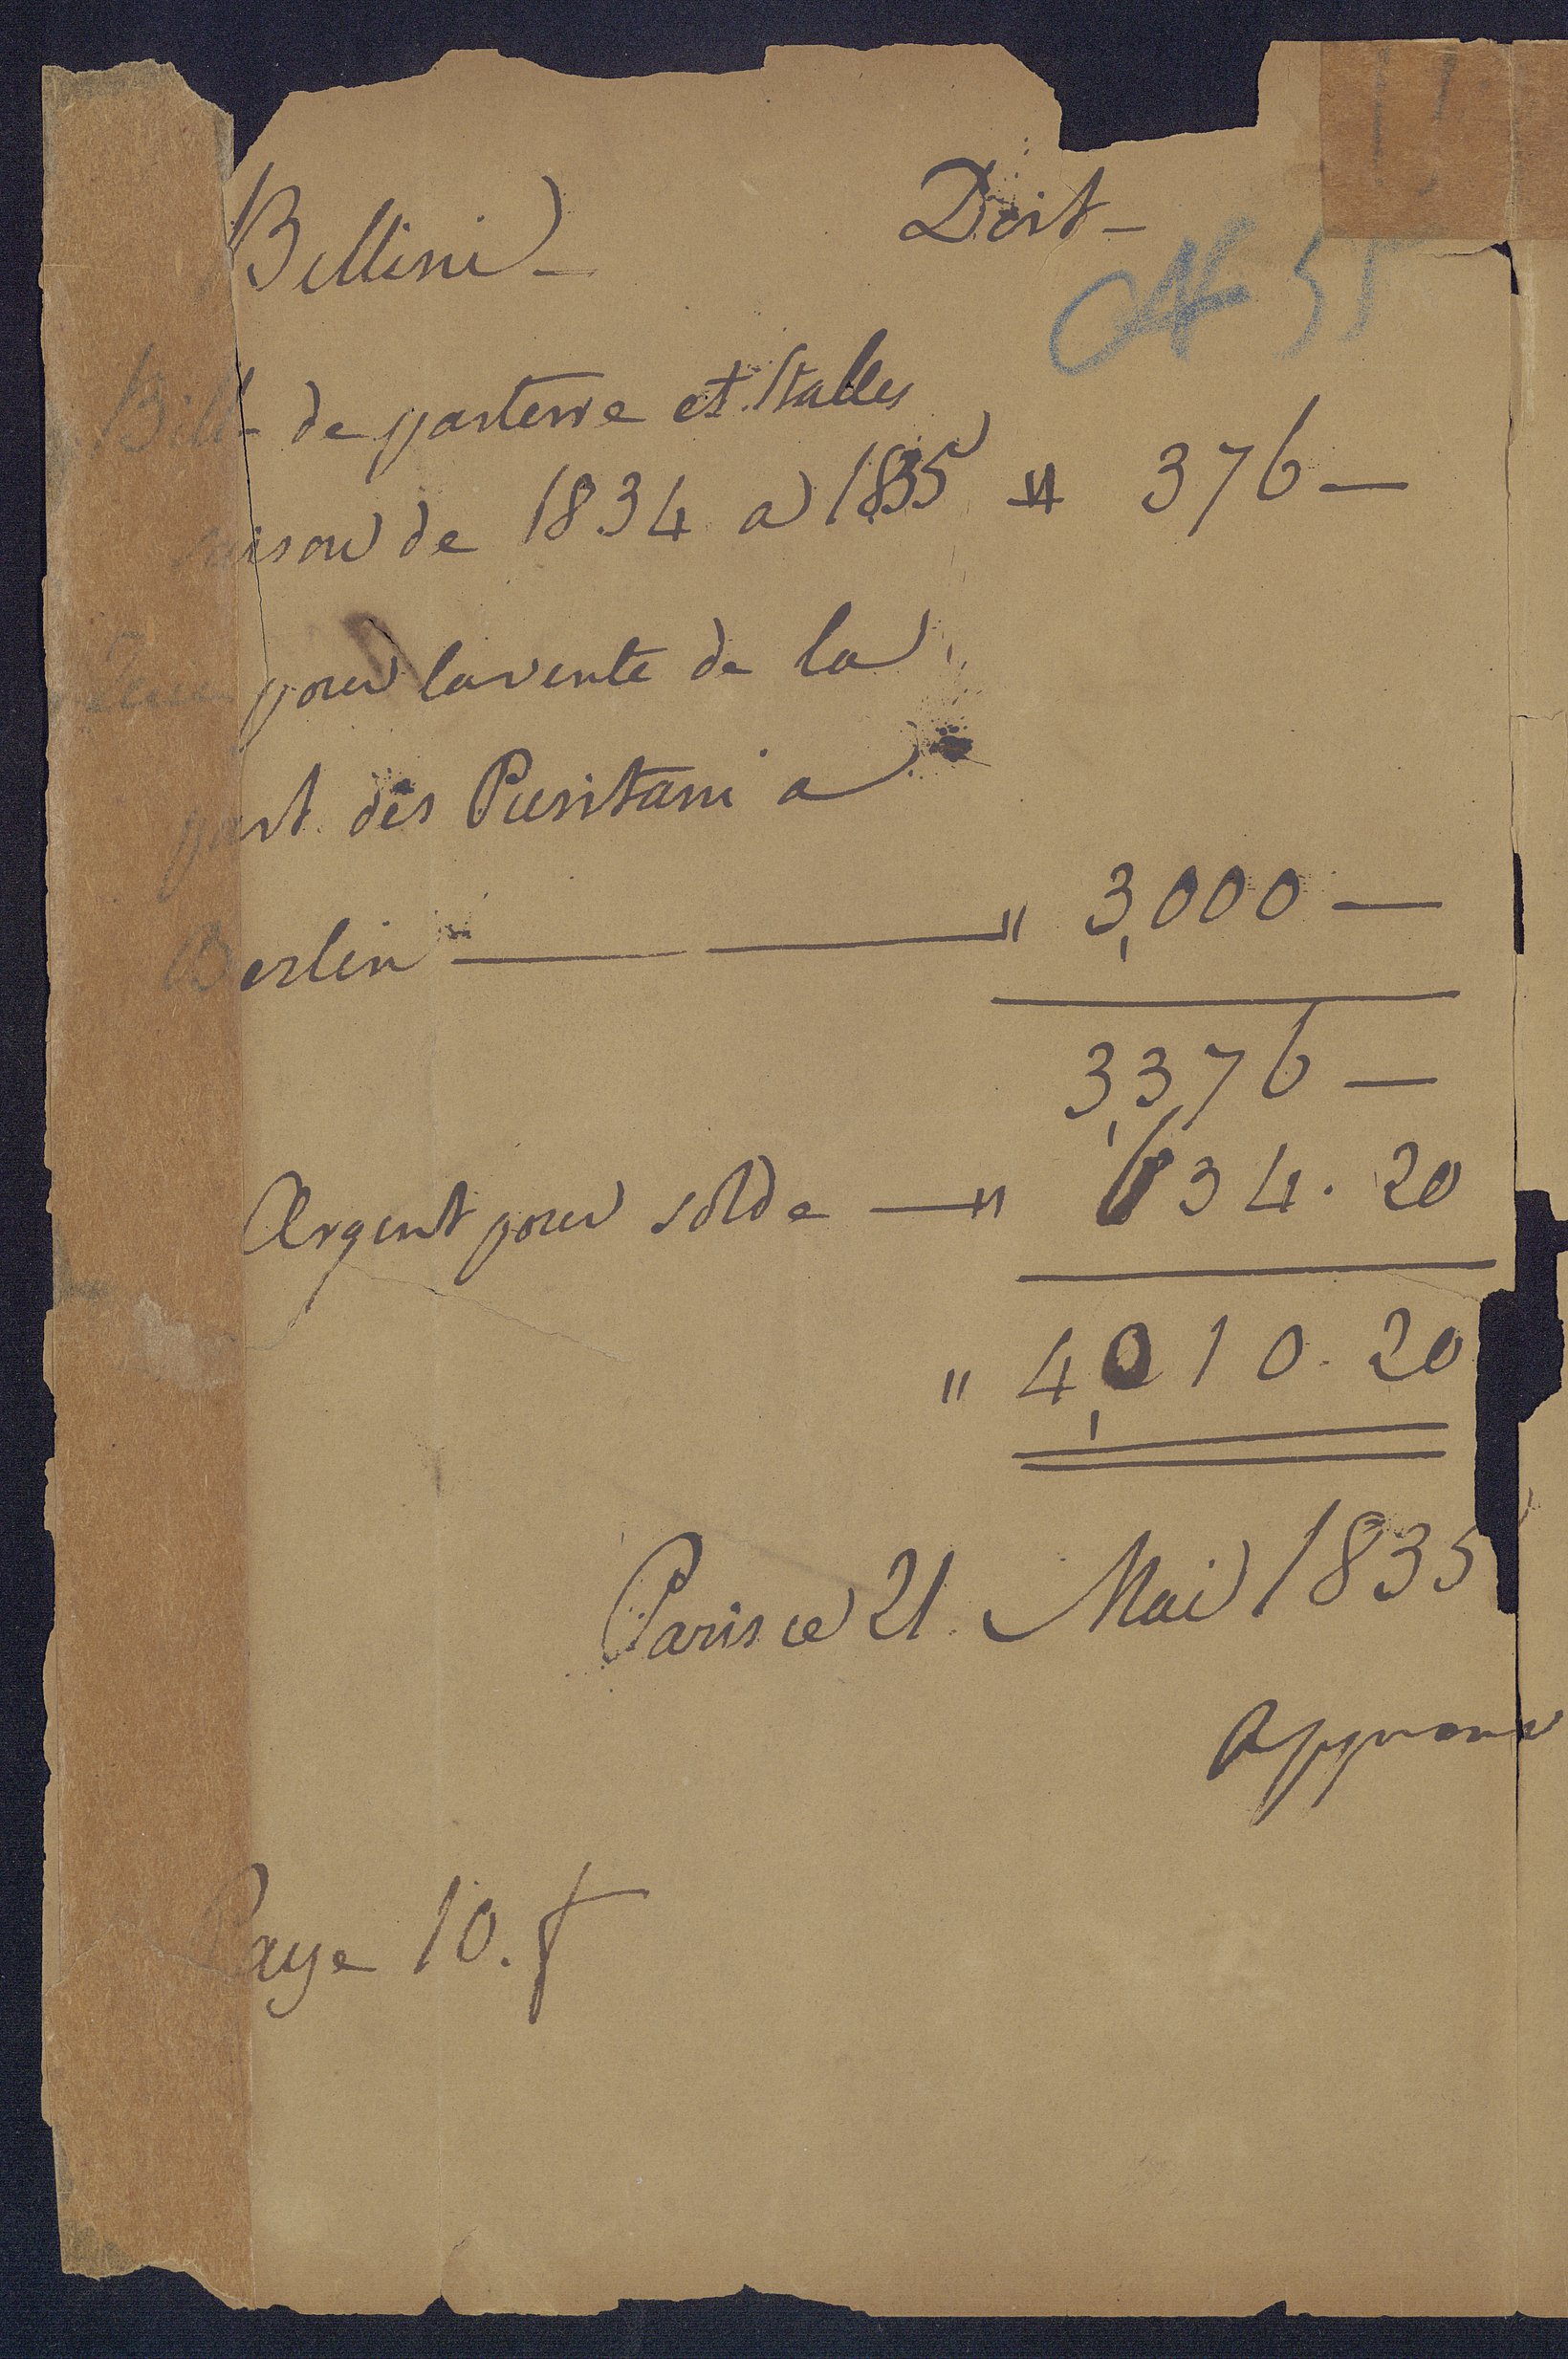 Bellini - Doit -
Billt de parterre et Stalles
saison de 1834 a 1835 " 376 —
pour la vente de la
part des Puritani a
Berlin — — " 3,000 —
3,376 —
Argent pour solde — " 634. 20
" 4,010. 20
Paris ce 21. Mai 1835
Paye 10. f